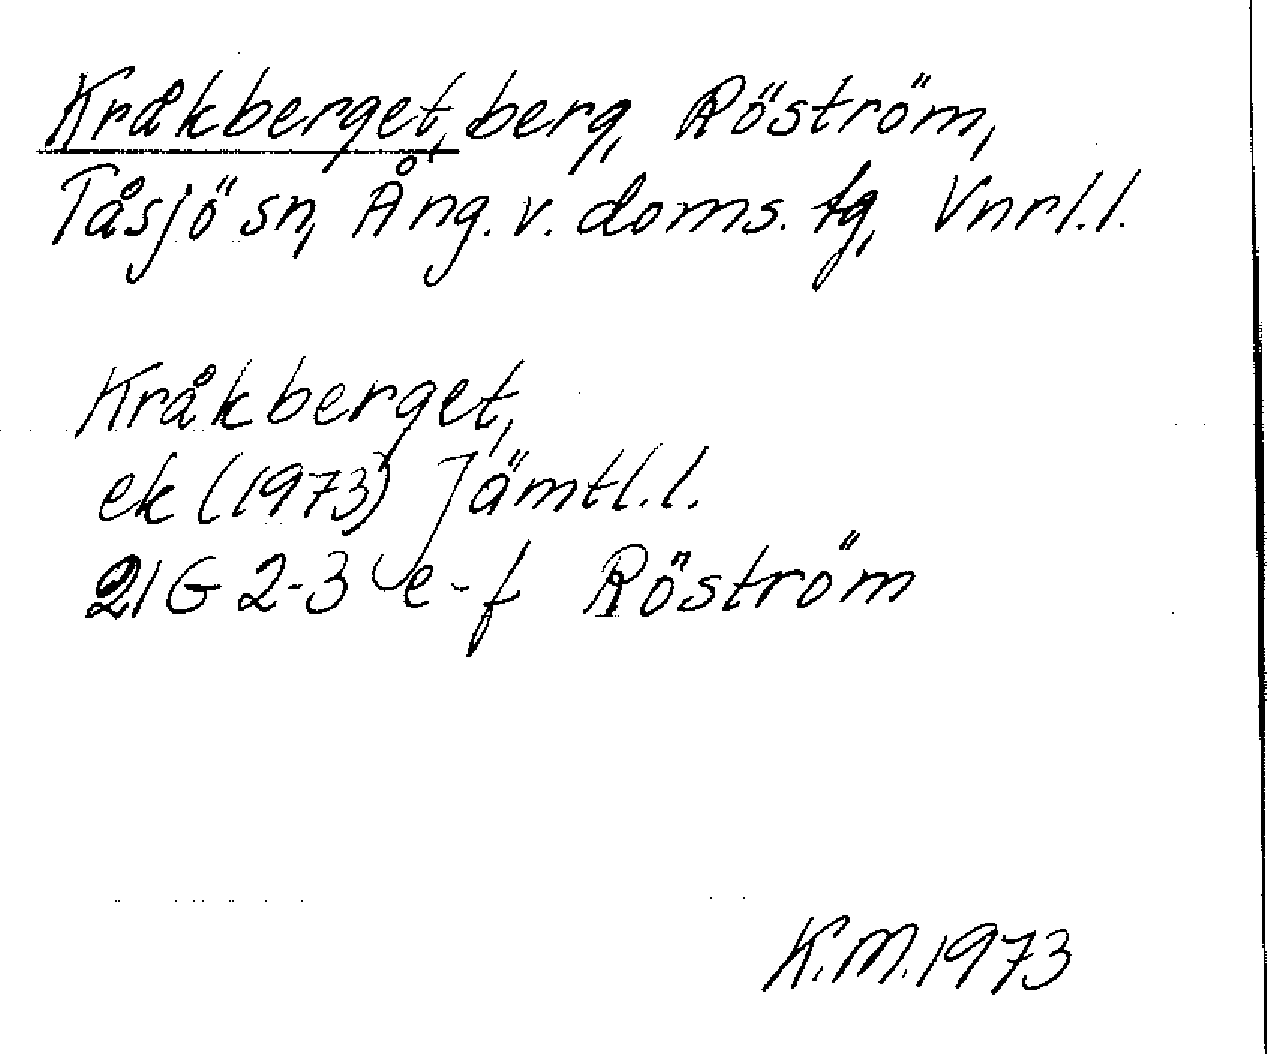 Kråkberget, berg, Röström,
Tåsjö sn, Ång. v. doms. tg, Vnrl.l.
Kråkberget,
ek (1973) Jämtl.l.
21G 2-3 e-f Röström
K.M. 1973